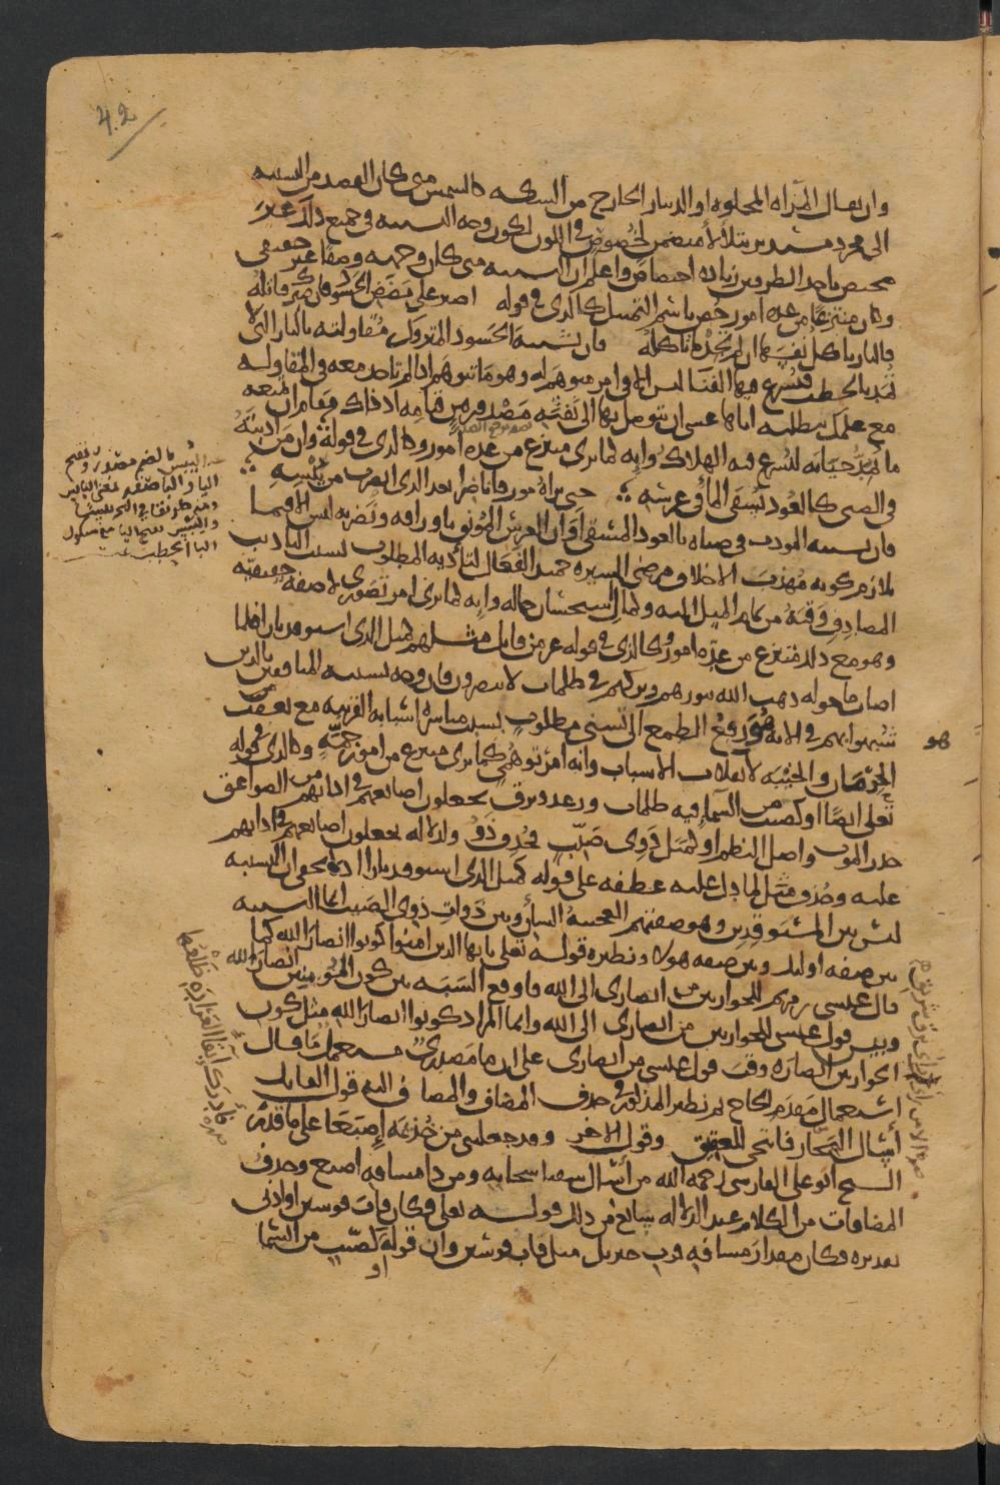 42
وان يقال المرآه المجلوه او الدينار الخارج من السكه كالشمس متى كان القصد من التشبيه
الى مجرد مستدير يتلألأ متضمن لخصوص في اللون لكون وجه التشبيه في جميع ذلك غير
مختص باحد الطرفين زياده اختصاص واعلم ان التشبيه متى كان وجهه وصفا غير حقيقي
وكان منتزعا من عده امور خص باسم التمثيل كالذي في قوله اصبر على مضض الحسود فان صبرك قاتله
فالنار تاكل نفسها ان لم تجد ما تاكله فان تشبيه الحسود المتروك مقاولته بالنار التي لا
تمد بالحطب فيسرع فيها الفناء ليس الا في امر متوهم له وهو ما تتوهم اذا لم تاخذ معه في المقاوله
مع علمك بتطلبه اياها عسى ان يتوصل بها الى نفثه مصدور من قيامه اذ ذاك مقام ان تمنعه
ما يمد حياته ليسرع فيه الهلاك وانه كما ترى منتزع من عده امور وكالذي في قوله وان من ادبته
في الصبى كالعود يسقى الماء في غرسه حتى تراه مورقا ناضرا بعد الذي ابصرت من يبسه
فان تشبيه المودب في صباه بالعود المسقى اوان الغرس المونق باوراقه ونضرته ليس الا فيما
يلازم كونه مهذب الاخلاق مرضي السيره حميد الفعال لتأديه المطلوب بسبب التاديب
المصادف وقته من تمام الميل اليه وكمال استحسان حاله وانه كما ترى امر تصوري لا صفه حقيقيه
وهو مع ذلك منتزع من عده امور وكالذي في قوله عز من قائل مثلهم كمثل الذي استوقد نارا فلما
اضات ما حوله ذهب الله بنورهم وتركهم في ظلمات لا يبصرون فان وجه تشبيه المنافقين بالذين
شبهوا بهم في الايه هو رفع الطمع الى تسني مطلوب بسبب مباشره اسبابه القريبه مع تعقب
هو
الحرمان والخيبه لانقلاب الاسباب وانه امر توهمي كما ترى منتزع من امور جمه وكالذي في قوله
تعلى ايضا او كصيب من السماء فيه ظلمات ورعد وبرق يجعلون اصابعهم في اذانهم من الصواعق
حذر الموت واصل النظم او كمثل ذوي صيب فحذف ذوو لدلاله يجعلون اصابعهم في اذانهم
عليه وحذف مثل لما دل عليه عطفه على قوله كمثل الذي استوقد نارا اذ لا يخفى ان التشبيه
ليس بين المستوقدين وهو صفتهم العجيبه الشأن وبين ذوات ذوي الصيب انما التشبيه
بين صفه اوليك وبين صفه هولاء ونظيره قوله تعلى يايها الذين امنوا كونوا انصار الله كما
قال عيسى بن مريم للحواريين من انصاري الى الله فاوقع الشبه بين كون المومنين انصار الله
وبين قول عيسى للحواريين من انصاري الى الله وانما المراد كونوا انصار الله مثل كون
الحواريين انصاره وقت قول عيسى من انصاري على ان ما مصدريه مستعمل ما قال
استعمال مقدم الحاج ثم نظير المذكور في حذف المضاف والمضاف اليه قول القايل
أسال البحار فانتحى للعقيق وقول الاخر وقد جعلتني من حزيمه إصبعا على ما قدره
الشيخ ابو علي الفارسي رحمه الله من أسال سقيا سحابه ومن ذا مسافه اصبع وحذف
المضافات من الكلام عند الدلاله سايغ من ذلك قوله تعلى فكان قاب قوسين او ادنى
تقديره فكان مقدار مسافه قرب جبريل مثل قاب قوسين وان قوله او كصيب من السما
اليبس بالضم مصدر وبفتح
فأدرك إبقاء العرادة ظلعها